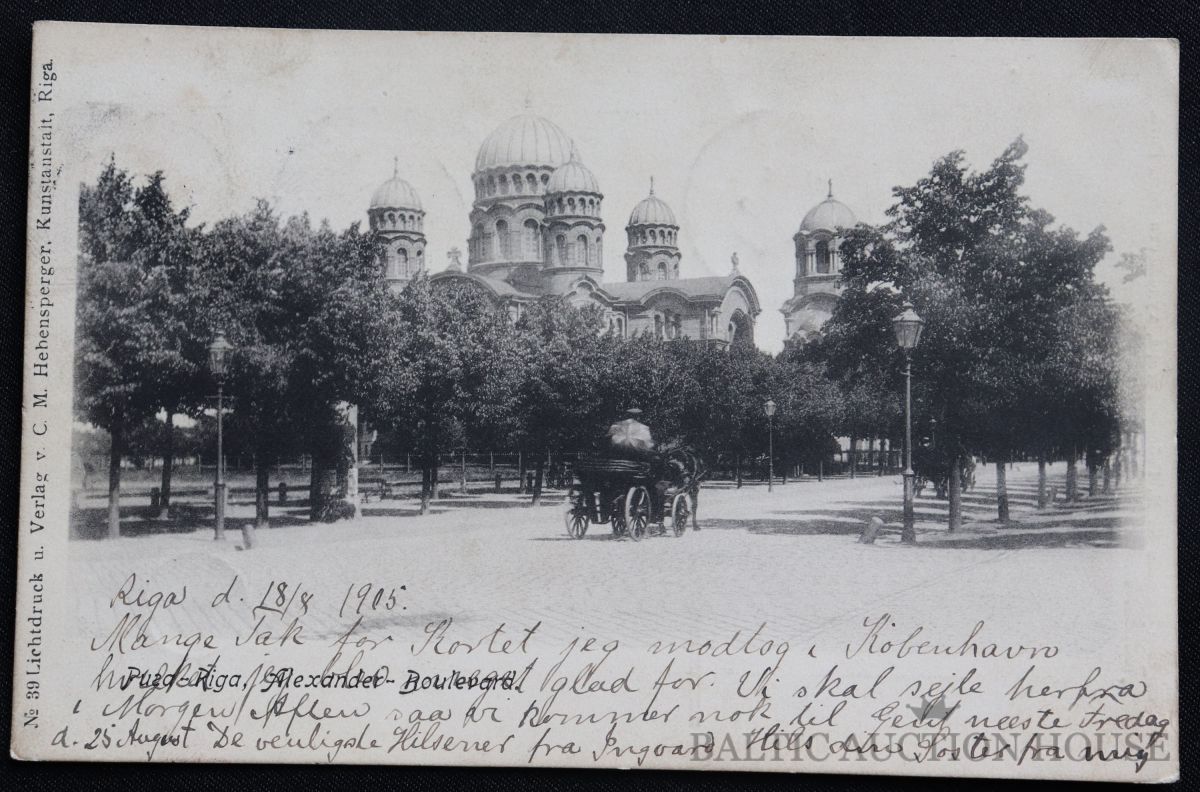 № 39 Lichtdruck u. Verlag v. C. M. Hebensperger, Kunstanstalt, Riga.
Riga d. 18/8 1905.
Mange Tak for Kortet jeg modtog i København
hvilket jeg blev meget glad for. Vi skal sejle herfra
Puza-Riga, Alexander-Boulevard.
i Morgen Aften saa vi kommer nok til Gent næste Fredag
d. 25 August De venligste Hilsener fra Ingvard Hils din Søster fra mig
BALTIC AUCTION HOUSE